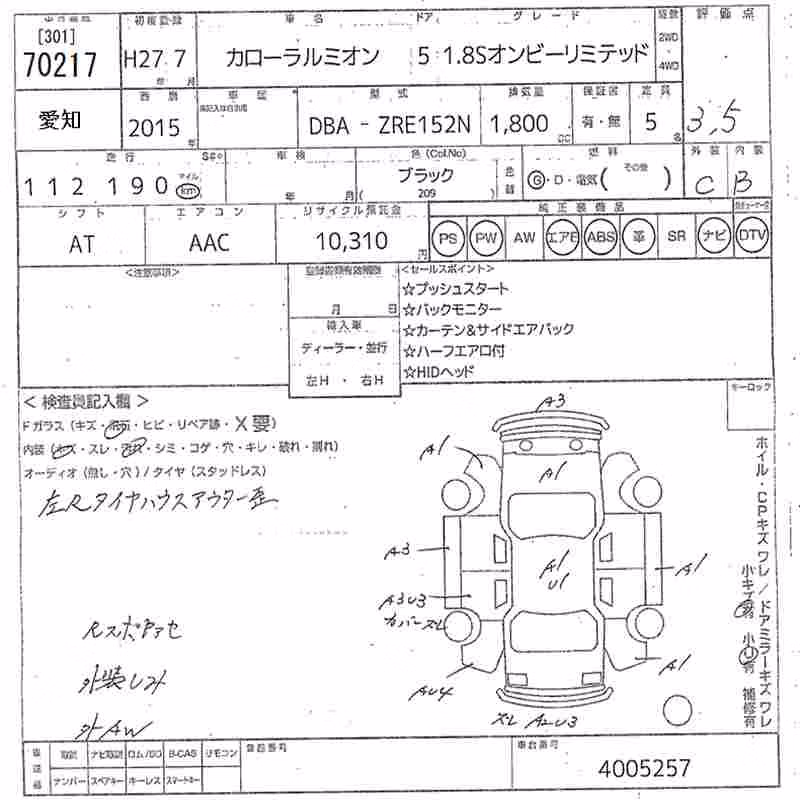 [301] 初度登録 車名 ドア グレード 駆動 評価点
70217 H27.7 カローラルミオン 5 1.8Sオンビーリミテッド 2WD・4WD
年 月
愛知 西暦 車歴 型式 排気量 保証書 定員 3.5
2015年 DBA - ZRE152N 1,800cc 有・無 5名
走行 車検 色(Col.No) 燃料 外装 内装
112 190 マイル km 年 月 ブラック 色替 G・D・電気( その他 ) C B
(209)
シフト エアコン リサイクル預託金 純正装備品
AT AAC 10,310円 PS PW AW エアB ABS 革 SR ナビ DTV
<注意事項> <セールスポイント>
月 日 ☆プッシュスタート
☆バックモニター
輸入車 ☆カーテン&サイドエアバック
ディーラー・並行 ☆ハーフエアロ付
左H ・ 右H ☆HIDヘッド
キーロック
<検査員記入欄>
Fガラス(キズ・飛石・ヒビ・リペア跡・X要)
内装(キズ・スレ・汚れ・シミ・コゲ・穴・キレ・破れ・割れ)
オーディオ(無し・穴)/タイヤ(スタッドレス)
左Rタイヤハウスアウター歪
Rスポ
外装レスト
外AW
A3
A1
A1
A3
A1
U1
A1
A3U3
カバースレ
AU4
A1
スレ A2U3
ホイル・CPキズ ワレ/ドアミラーキズ ワレ
小キズ有 小U有 補修有
取説 ナビ取説 B-CAS リモコン 登録番号 車台番号
ナンバー スペアキー キーレス スマートキー 4005257